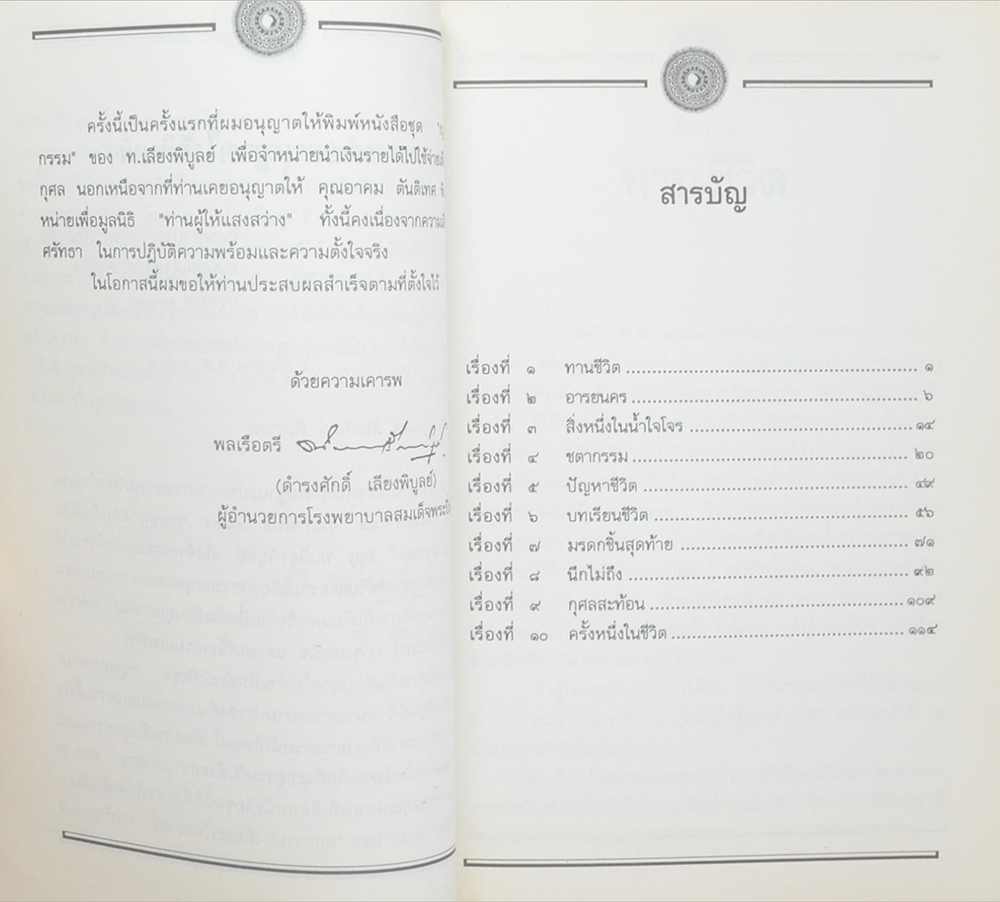 ครั้งนี้เป็นครั้งแรกที่ผมอนุญาตให้พิมพ์หนังสือชุด
กรรม" ของ ท.เลียงพิบูลย์ เพื่อจำหน่ายนำเงินรายได้ไปใช้จ่าย
กุศล นอกเหนือจากที่ท่านเคยอนุญาตให้ คุณอาคม ตันติเทศ
หน่ายเพื่อมูลนิธิ "ท่านผู้ให้แสงสว่าง" ทั้งนี้คงเนื่องจากความ
ศรัทธา ในการปฏิบัติความพร้อมและความตั้งใจจริง
ในโอกาสนี้ผมขอให้ท่านประสบผลสำเร็จตามที่ตั้งใจไว้
ด้วยความเคารพ
พลเรือตรี
(ดำรงศักดิ์ เลียงพิบูลย์)
ผู้อำนวยการโรงพยาบาลสมเด็จพระ
สารบัญ
เรื่องที่ ๑ ทานชีวิต ........................................ ๑
เรื่องที่ ๒ อารยนคร ........................................ ๖
เรื่องที่ ๓ สิ่งหนึ่งในน้ำใจโจร ........................................ ๑๔
เรื่องที่ ๔ ชตากรรม ........................................ ๒๐
เรื่องที่ ๕ ปัญหาชีวิต ........................................ ๔๙
เรื่องที่ ๖ บทเรียนชีวิต ........................................ ๕๖
เรื่องที่ ๗ มรดกชิ้นสุดท้าย ........................................ ๗๑
เรื่องที่ ๘ นึกไม่ถึง ........................................ ๙๒
เรื่องที่ ๙ กุศลสะท้อน ........................................ ๑๐๙
เรื่องที่ ๑๐ ครั้งหนึ่งในชีวิต ........................................ ๑๑๔